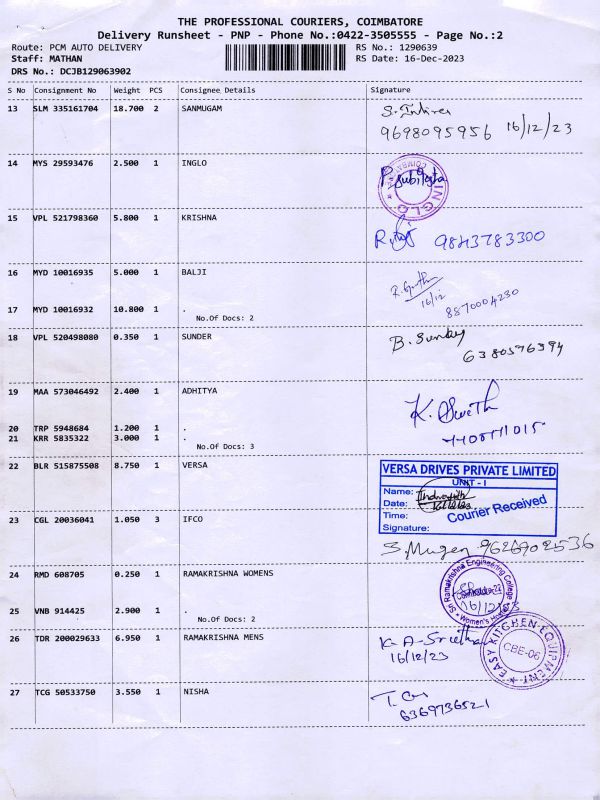 THE PROFESSIONAL COURIERS, COIMBATORE
Delivery Runsheet - PNP - Phone No.:0422-3505555 - Page No.:2
Route: PCM AUTO DELIVERY
RS No.: 1290639
Staff: MATHAN
RS Date: 16-Dec-2023
DRS No.: DCJB129063902
S No Consignment No Weight PCS Consignee Details Signature
13 SLM 335161704 18.700 2 SANMUGAM
9698095956 16/12/23
14 MYS 29593476 2.500 1 INGLO
INGLO
15 VPL 521798360 5.800 1 KRISHNA
9843783300
16 MYD 10016935 5.000 1 BALJI
16/12 8870004230
17 MYD 10016932 10.800 1 .
No.Of Docs: 2
18 VPL 520498080 0.350 1 SUNDER
B. Sunday
6380576394
19 MAA 573046492 2.400 1 ADHITYA
K.
20 TRP 5948684 1.200 1 .
21 KRR 5835322 3.000 1 .
No.Of Docs: 3
22 BLR 515875508 8.750 1 VERSA
VERSA DRIVES PRIVATE LIMITED
UNIT - I
Name:
Date: 16/12/23
Time:
Signature:
Courier Received
23 CGL 20036041 1.050 3 IFCO
S. Mugen 9626902536
24 RMD 608705 0.250 1 RAMAKRISHNA WOMENS
Sri Ramakrishna Engineering College
Women's
16/12/23
25 VNB 914425 2.900 1 .
No.Of Docs: 2
26 TDR 200029633 6.950 1 RAMAKRISHNA MENS
K. A-
16/12/23
EASY KITCHEN EQUIPMENT
CBE-06
27 TCG 50533750 3.550 1 NISHA
6369736521